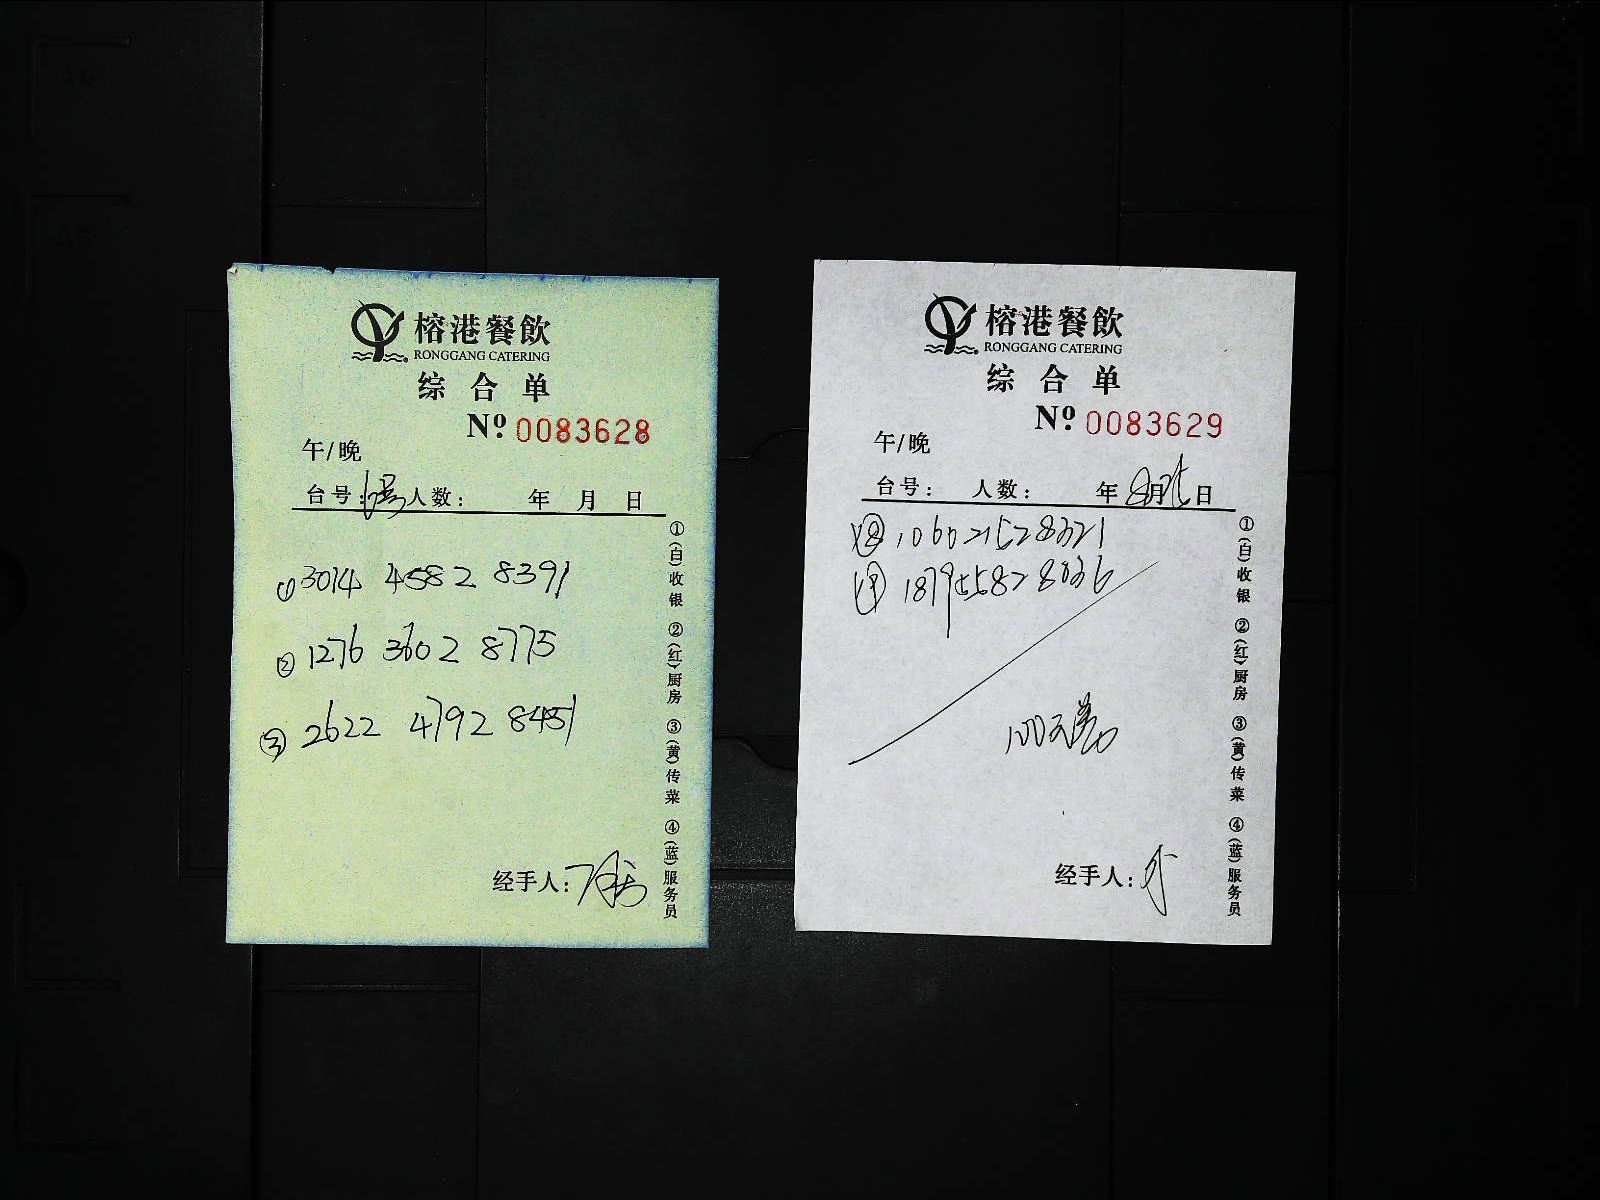 榕港餐飲
RONGGANG CATERING
综合单
Nº 0083628
午/晚
台号: 6号 人数: 年 月 日
① 3014 4582 8391
② 1276 3602 8775
③ 2622 4792 8451
经手人:
①(白)收银 ②(红)厨房 ③(黄)传菜 ④(蓝)服务员
榕港餐飲
RONGGANG CATERING
综合单
Nº 0083629
午/晚
台号: 人数: 年 8月 日
106021528321
187955828036
100元
经手人:
①(白)收银 ②(红)厨房 ③(黄)传菜 ④(蓝)服务员